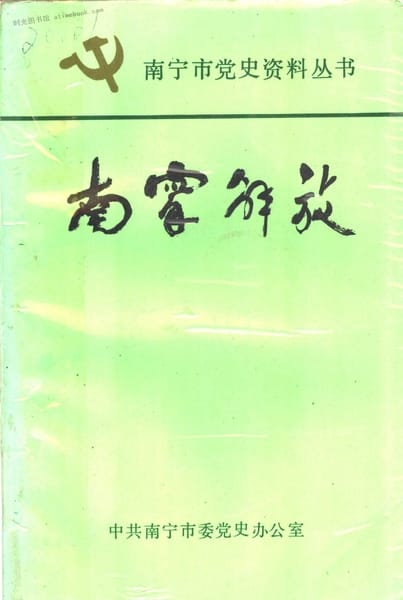 时光图书馆 atimebook.com
南宁市党史资料丛书
南寧解放
中共南宁市委党史办公室